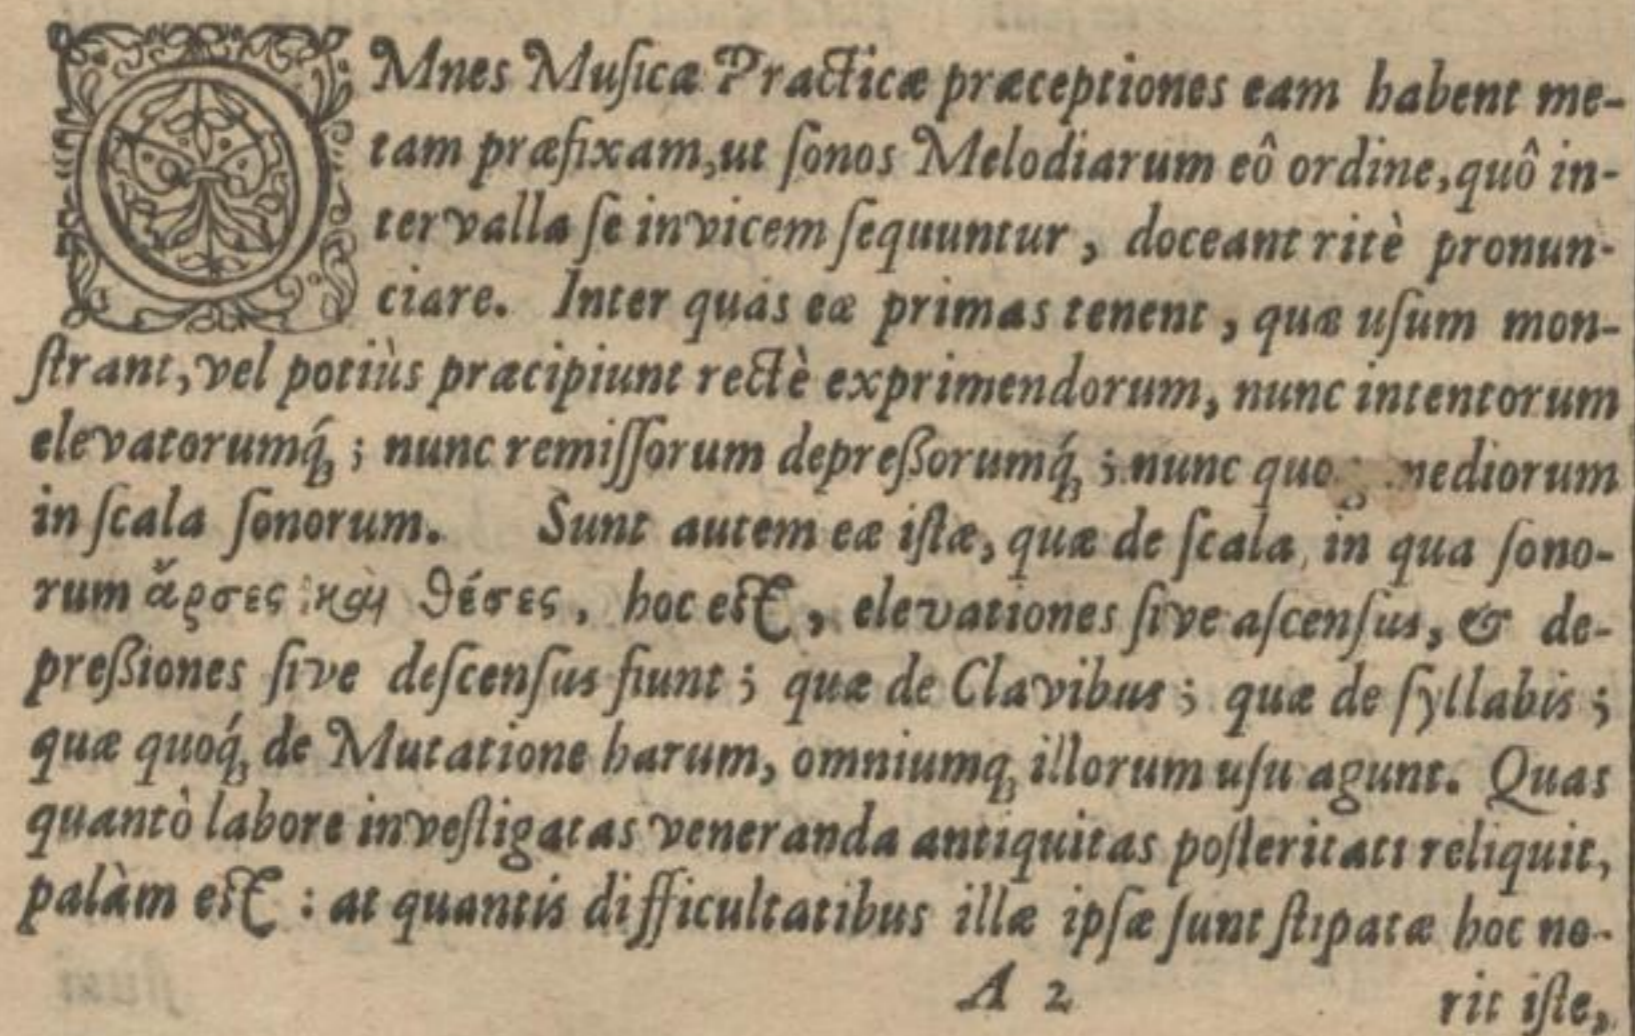 OMnes Muſicæ Practicæ præceptiones eam habent me-
tam præfixam, ut ſonos Melodiarum eô ordine, quô in-
tervalla ſe invicem ſequuntur, doceant ritè pronun-
ciare. Inter quas eæ primas tenent, quæ uſum mon-
ſtrant, vel potiùs præcipiunt rectè exprimendorum, nunc intentorum
elevatorumq́ꝫ; nunc remiſſorum depreßorumq́ꝫ; nunc mediorum
in ſcala ſonorum. Sunt autem eæ iſtæ, quæ de ſcala, in qua ſono-
rum ἄρσες καὶ θέσες, hoc eſt, elevationes ſive aſcenſus, & de-
preßiones ſive deſcenſus fiunt; quæ de Clavibus; quæ de ſyllabis;
quæ quoq́ꝫ de Mutatione harum, omniumqꝫ illorum uſu agunt. Quas
quantò labore inveſtigatas veneranda antiquitas poſteritati reliquit,
palàm eſt: at quantis difficultatibus illæ ipſæ ſunt ſtipatæ hoc no-
A 2 rit iſte,